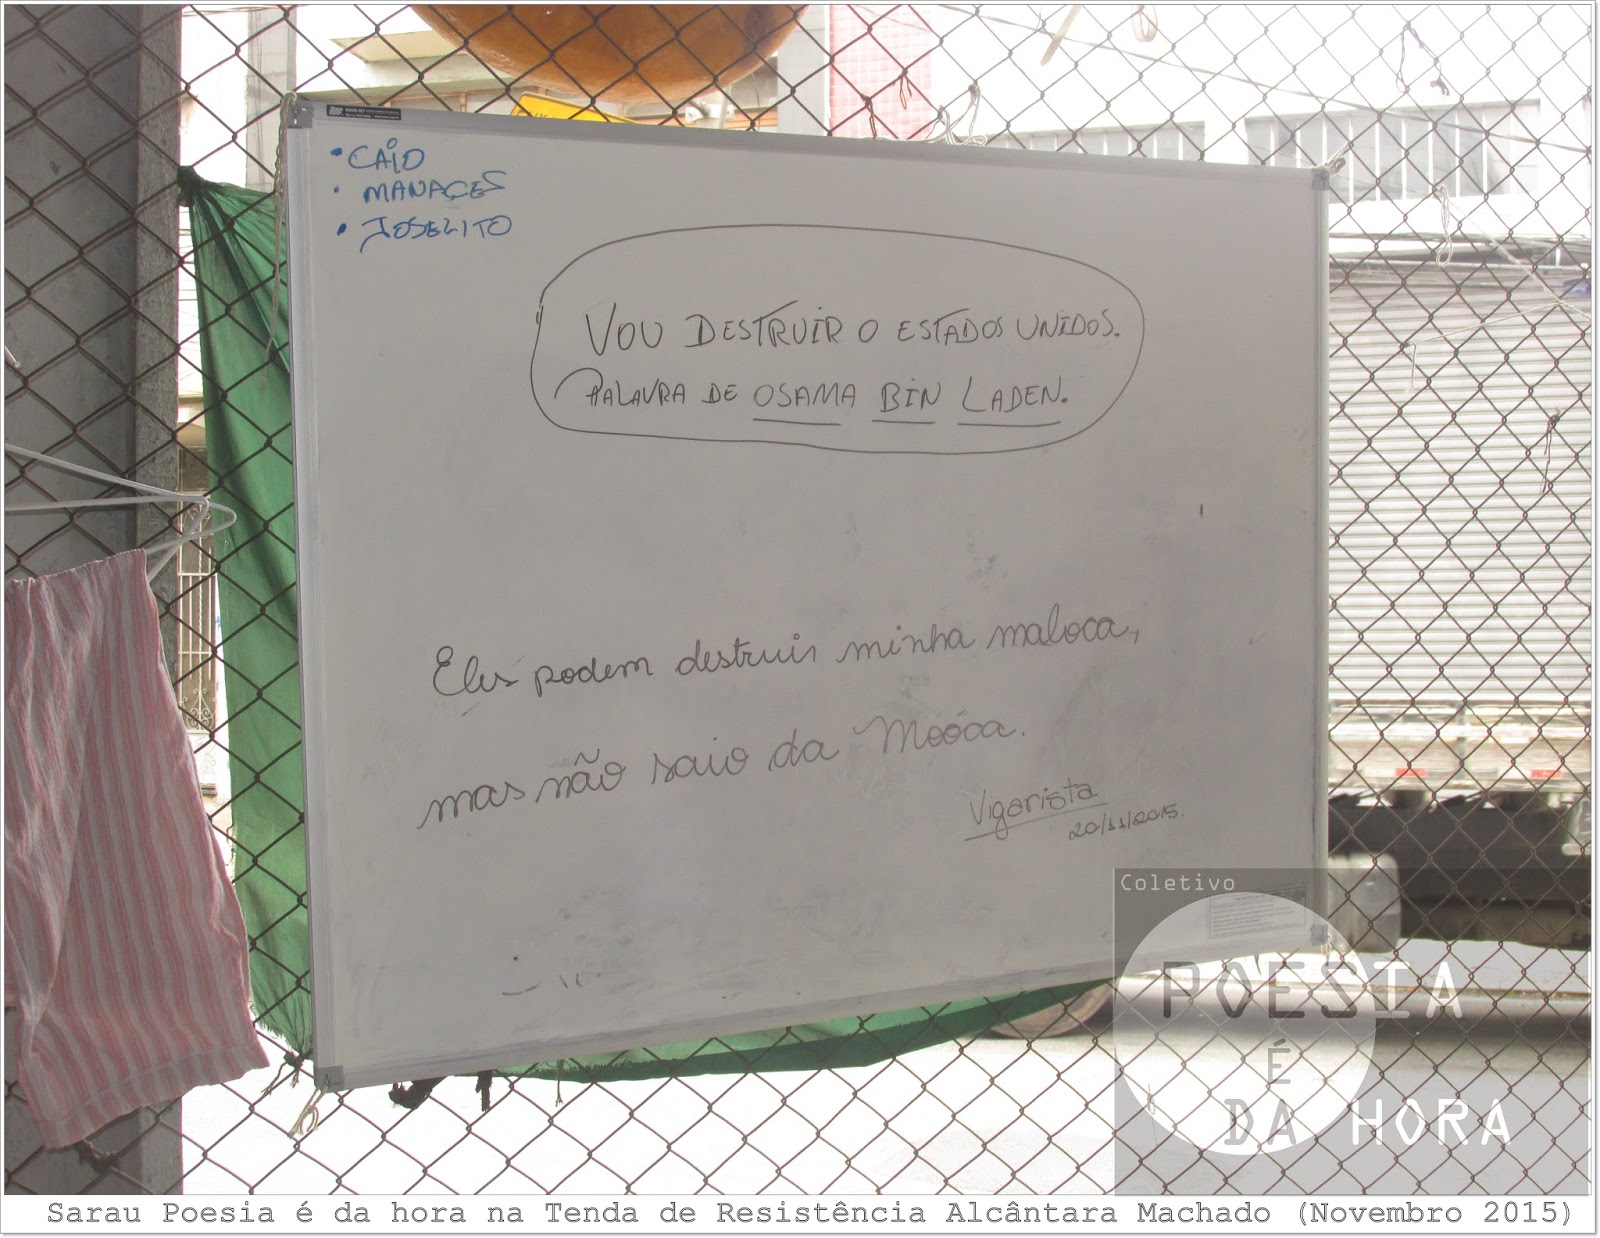 • CAIO
• MANAÇES
• JOSELITO
VOU DESTRUIR O ESTADOS UNIDOS.
PALAVRA DE OSAMA BIN LADEN.
Eles podem destruir minha maloca,
mas não saio da Moóca.
Vigarista
20/11/2015.
Coletivo
POESIA
É
DA HORA
Sarau Poesia é da hora na Tenda de Resistência Alcântara Machado (Novembro 2015)